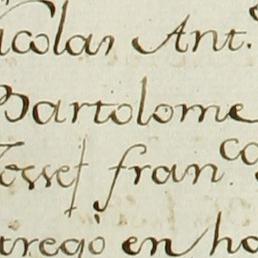 icolas Ant.
Bartolome
Jossef fran.co
tregò en ho